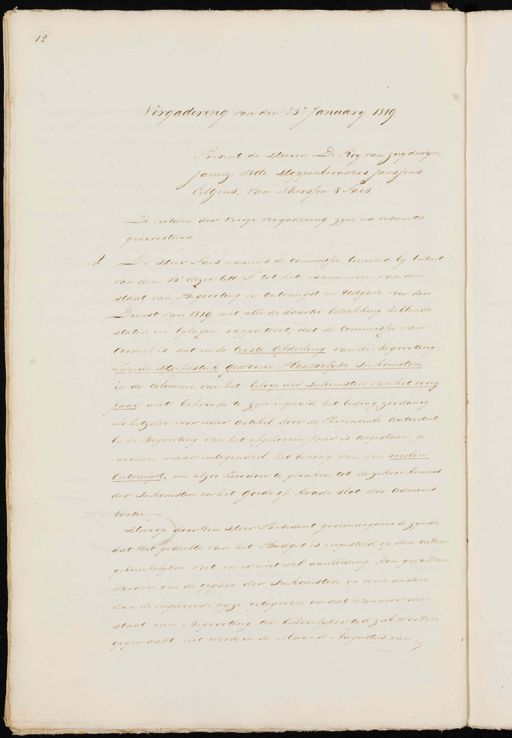 12
Vergadering van den 23e January 1819
Present de Heeren De Roy van Zuydewyn
Jamez,
Eltgens, Van & Sars
De notulen der Vorige Vergadering zyn na resumtie
gearresteerd
De Heer Sars namens de Commissie benoemd by besluit
van den 15e dezer tot het examineren van den
staat van Begrooting in ontvangst en Uitgave voor den
Dienst van 1819 met alle de daartoe betrekking hebbende
staten en bylagen, rapporteert dat de Commissie van
oordeel is, dat in de Eerste Afdeeling van de Begrooting
Gewone Plaatselyke Inkomsten
in de Colomme van het bedrag der Inkomsten van het vorig
jaar niet behoorde te zyn ingevuld het bedrag zoodanig
als hetzelve voor ieder Artikel door de Provinciale Autoriteit
by de Begrooting van het afgeloopen Jaar is toegestaan ge-
worden, maar integendeel het bedrag van den reëelen
Ontvangst, om alzoo hierdoor te geraken tot de zekere kennis
der Inkomsten en het Goede of Kwade slot der Adminis
tratie
Hierop door den Heer President geremarqueerd zynde,
dat dit gedeelte van het Budget is ingesteld op den tot nu
gebruikelyken voet en er niet wel aanleiding kon gevonden
worden, om de opgave der Inkomsten op eene andere
dan de ingevoerde wyze optegeven, omdat wanneer den
staat van Begrooting ter behoorlyker tyd zal worden
opgemaakt dit werk in de Maand Augustus van